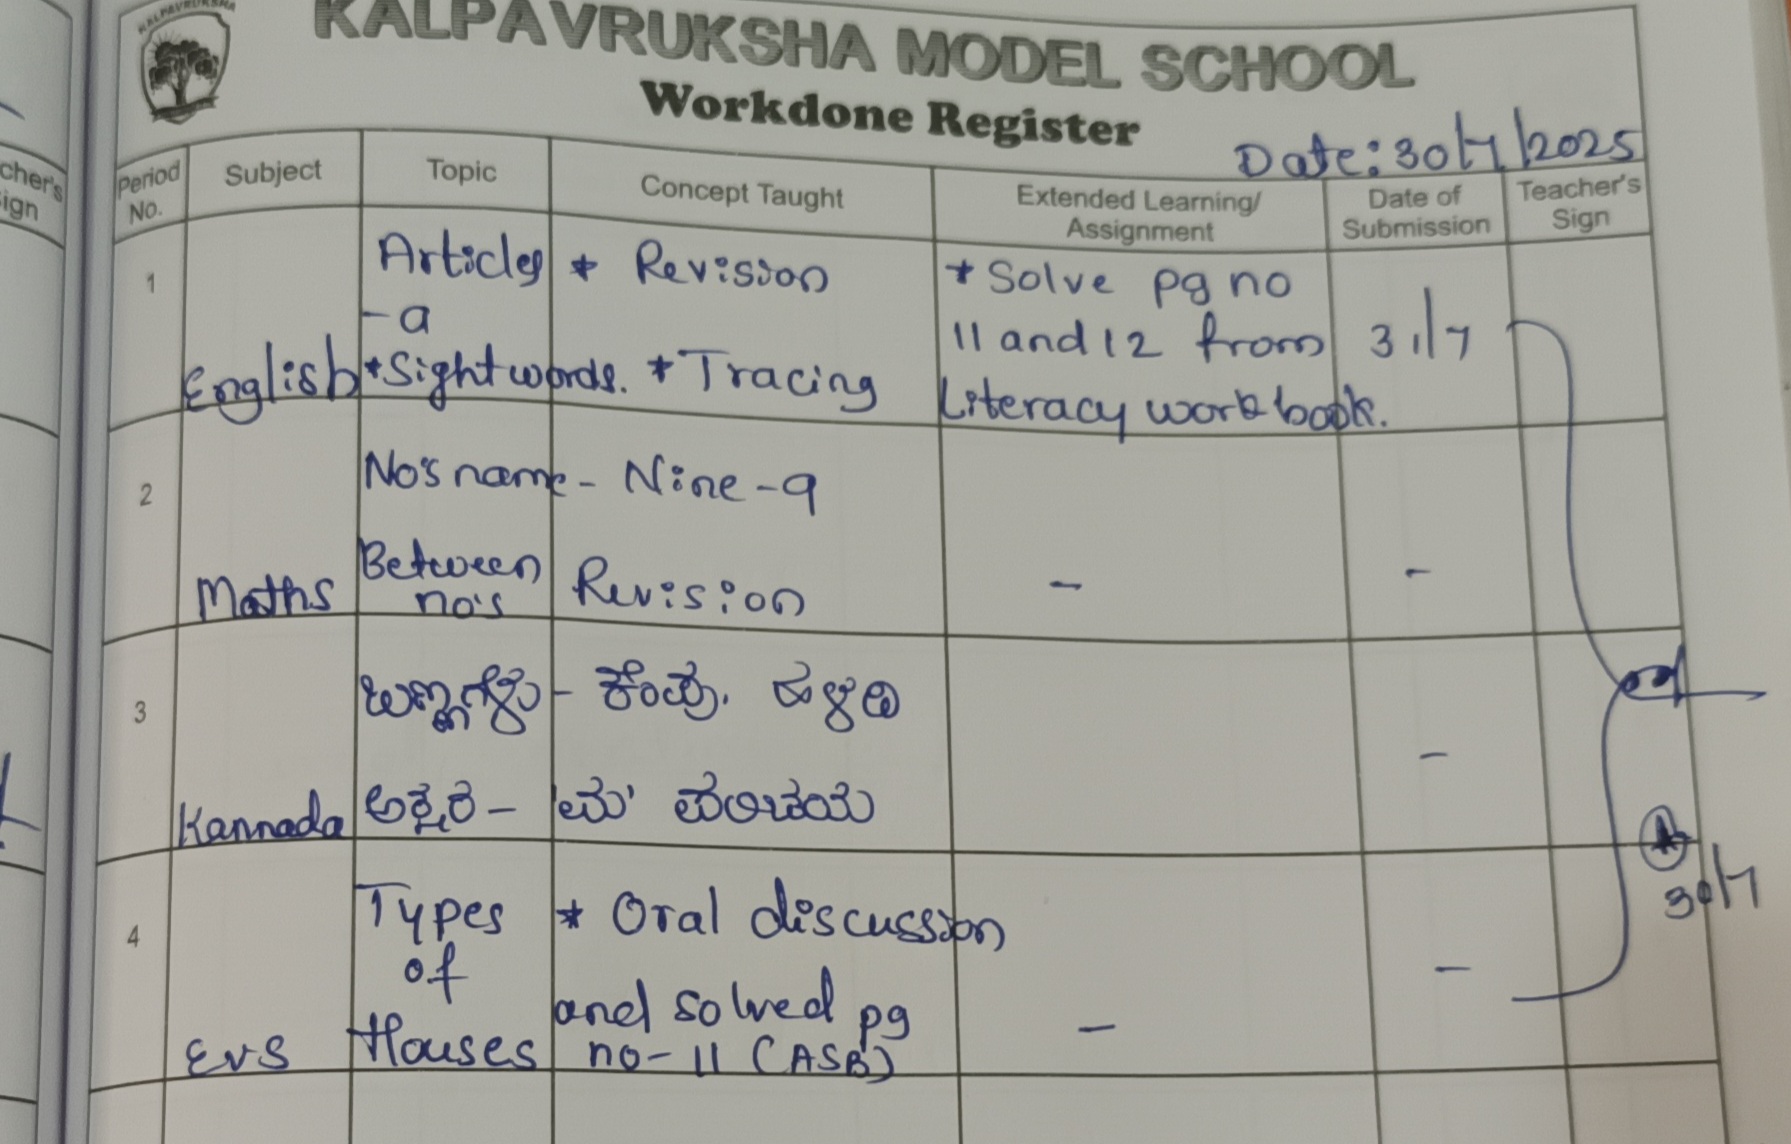 KALPAVRUKSHA
KALPAVRUKSHA MODEL SCHOOL
Workdone Register
Date: 30/7/2025
cher's
ign
Period No.
Subject
Topic
Concept Taught
Extended Learning/
Assignment
Date of
Submission
Teacher's
Sign
1
English
Articles
-a
*Sight words.
* Revision
* Tracing
* Solve pg no
11 and 12 from
Literacy work book.
31/7
2
Maths
No's name - Nine - 9
Between
no's
Revision
-
-
3
Kannada
ಬಣ್ಣಗಳು - ಕೆಂಪು, ಹಳದಿ
ಅಕ್ಷರ - 'ಮ' ಪರಿಚಯ
-
4
EVS
Types
of
Houses
* Oral discussion
and solved pg
no - 11 (ASB)
-
-
30/7